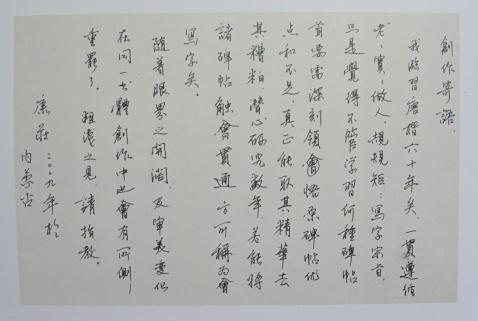 創作寄語
我临習唐楷六十年矣，一貫遵循
老老實實做人，規規矩矩寫字宗旨，
只是覺得不管学習何種碑帖
首要需深刻领會悟原碑帖优
点和不足，真正能取其精華去
其糟粕，潜心研究数年，若能将
諸碑帖触會貫通方可稱为會
寫字矣。
随着眼界之開阔，及审美变化
在同一书體創作中也會有所側
重罢了。粗淺之見，請指教
二〇〇九年於
内蒙古